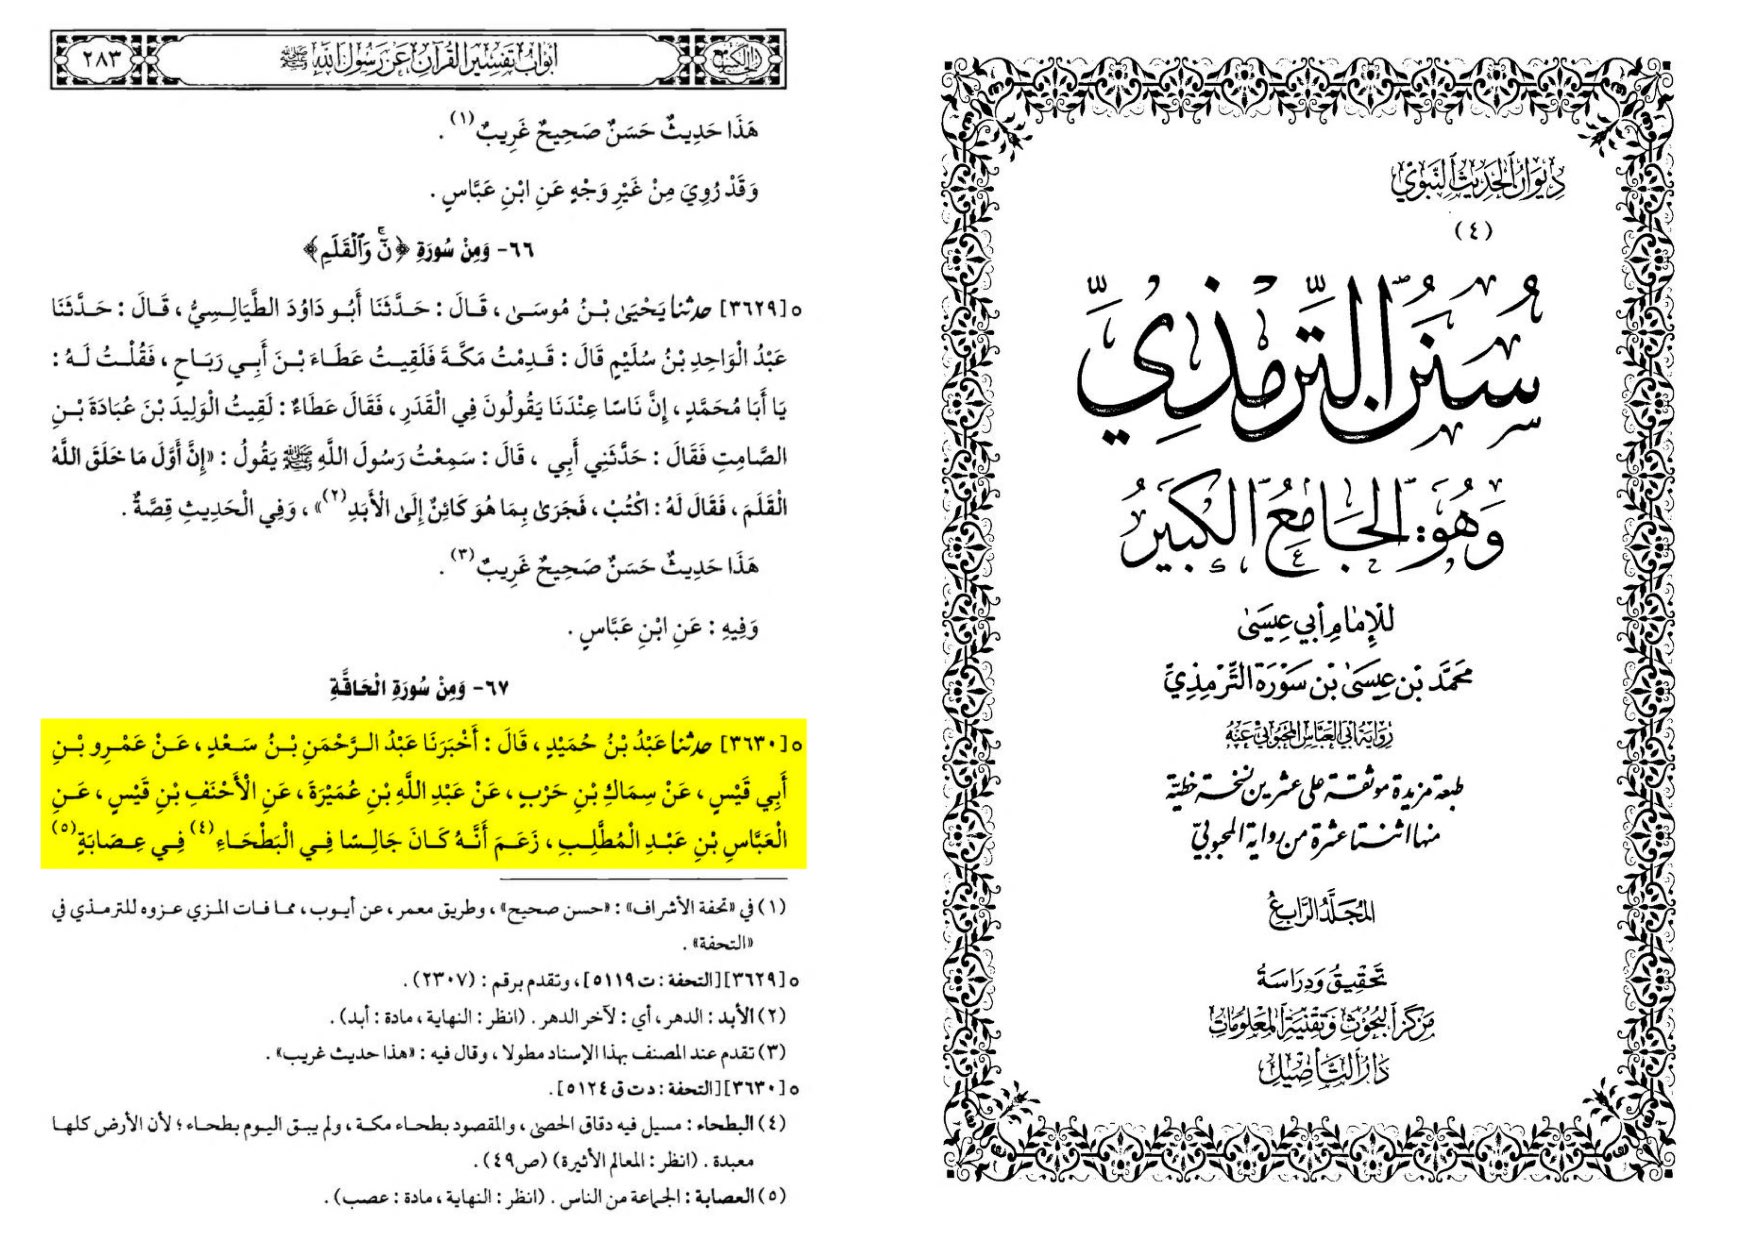 ديوان الحديث النبوي
(٤)
سُنَنُ التِّرْمِذِيِّ
وَهُوَ: الجَامِعُ الكَبِيرُ
للإمام أبي عيسى
محمد بن عيسى بن سورة الترمذي
رواية أبي العباس المحبوبي عنه
طبعة مزيدة موثقة على عشرين نسخة خطية
منها اثنتا عشرة من رواية المحبوبي
المجلد الرابع
تحقيق ودراسة
مركز البحوث وتقنية المعلومات
دار التأصيل
الجامع الكبير أبواب تفسير القرآن عن رسول الله ﷺ ٢٨٣
هَذَا حَدِيثٌ حَسَنٌ صَحِيحٌ غَرِيبٌ(١) .
وَقَدْ رُوِيَ مِنْ غَيْرِ وَجْهٍ عَنِ ابْنِ عَبَّاسٍ .
٦٦- وَمِنْ سُورَةِ ﴿نٓ وَٱلْقَلَمِ﴾
٥[٣٦٢٩] حدثنا يَحْيَىٰ بْنُ مُوسَىٰ ، قَالَ : حَدَّثَنَا أَبُو دَاوُدَ الطَّيَالِسِيُّ ، قَالَ : حَدَّثَنَا
عَبْدُ الْوَاحِدِ بْنُ سُلَيْمٍ قَالَ : قَدِمْتُ مَكَّةَ فَلَقِيتُ عَطَاءَ بْنَ أَبِي رَبَاحٍ ، فَقُلْتُ لَهُ :
يَا أَبَا مُحَمَّدٍ ، إِنَّ نَاسًا عِنْدَنَا يَقُولُونَ فِي الْقَدَرِ ، فَقَالَ عَطَاءٌ : لَقِيتُ الْوَلِيدَ بْنَ عُبَادَةَ بْنِ
الصَّامِتِ فَقَالَ : حَدَّثَنِي أَبِي ، قَالَ : سَمِعْتُ رَسُولَ اللَّهِ ﷺ يَقُولُ : «إِنَّ أَوَّلَ مَا خَلَقَ اللَّهُ
الْقَلَمَ ، فَقَالَ لَهُ : اكْتُبْ ، فَجَرَىٰ بِمَا هُوَ كَائِنٌ إِلَى الْأَبَدِ(٢)» ، وَفِي الْحَدِيثِ قِصَّةٌ .
هَذَا حَدِيثٌ حَسَنٌ صَحِيحٌ غَرِيبٌ(٣) .
وَفِيهِ : عَنِ ابْنِ عَبَّاسٍ .
٦٧- وَمِنْ سُورَةِ الْحَاقَّةِ
٥[٣٦٣٠] حدثنا عَبْدُ بْنُ حُمَيْدٍ ، قَالَ : أَخْبَرَنَا عَبْدُ الرَّحْمَنِ بْنُ سَعْدٍ ، عَنْ عَمْرِو بْنِ
أَبِي قَيْسٍ ، عَنْ سِمَاكِ بْنِ حَرْبٍ ، عَنْ عَبْدِ اللَّهِ بْنِ عُمَيْرَةَ ، عَنِ الْأَحْنَفِ بْنِ قَيْسٍ ، عَنِ
الْعَبَّاسِ بْنِ عَبْدِ الْمُطَّلِبِ ، زَعَمَ أَنَّهُ كَانَ جَالِسًا فِي الْبَطْحَاءِ(٤) فِي عِصَابَةٍ(٥)
(١) في «تحفة الأشراف» : «حسن صحيح» ، وطريق معمر ، عن أيوب ، مما فات المزي عزوه للترمذي في
«التحفة» .
٥[٣٦٢٩][التحفة : ت ٥١١٩] ، وتقدم برقم : (٢٣٠٧) .
(٢) الأبد : الدهر ، أي : لآخر الدهر . (انظر : النهاية ، مادة : أبد) .
(٣) تقدم عند المصنف بهذا الإسناد مطولا ، وقال فيه : «هذا حديث غريب» .
٥[٣٦٣٠][التحفة : د ت ق ٥١٢٤] .
(٤) البطحاء : مسيل فيه دقاق الحصى ، والمقصود بطحاء مكة ، ولم يبق اليوم بطحاء ؛ لأن الأرض كلها
معبدة . (انظر : المعالم الأثيرة) (ص٤٩) .
(٥) العصابة : الجماعة من الناس . (انظر : النهاية ، مادة : عصب) .